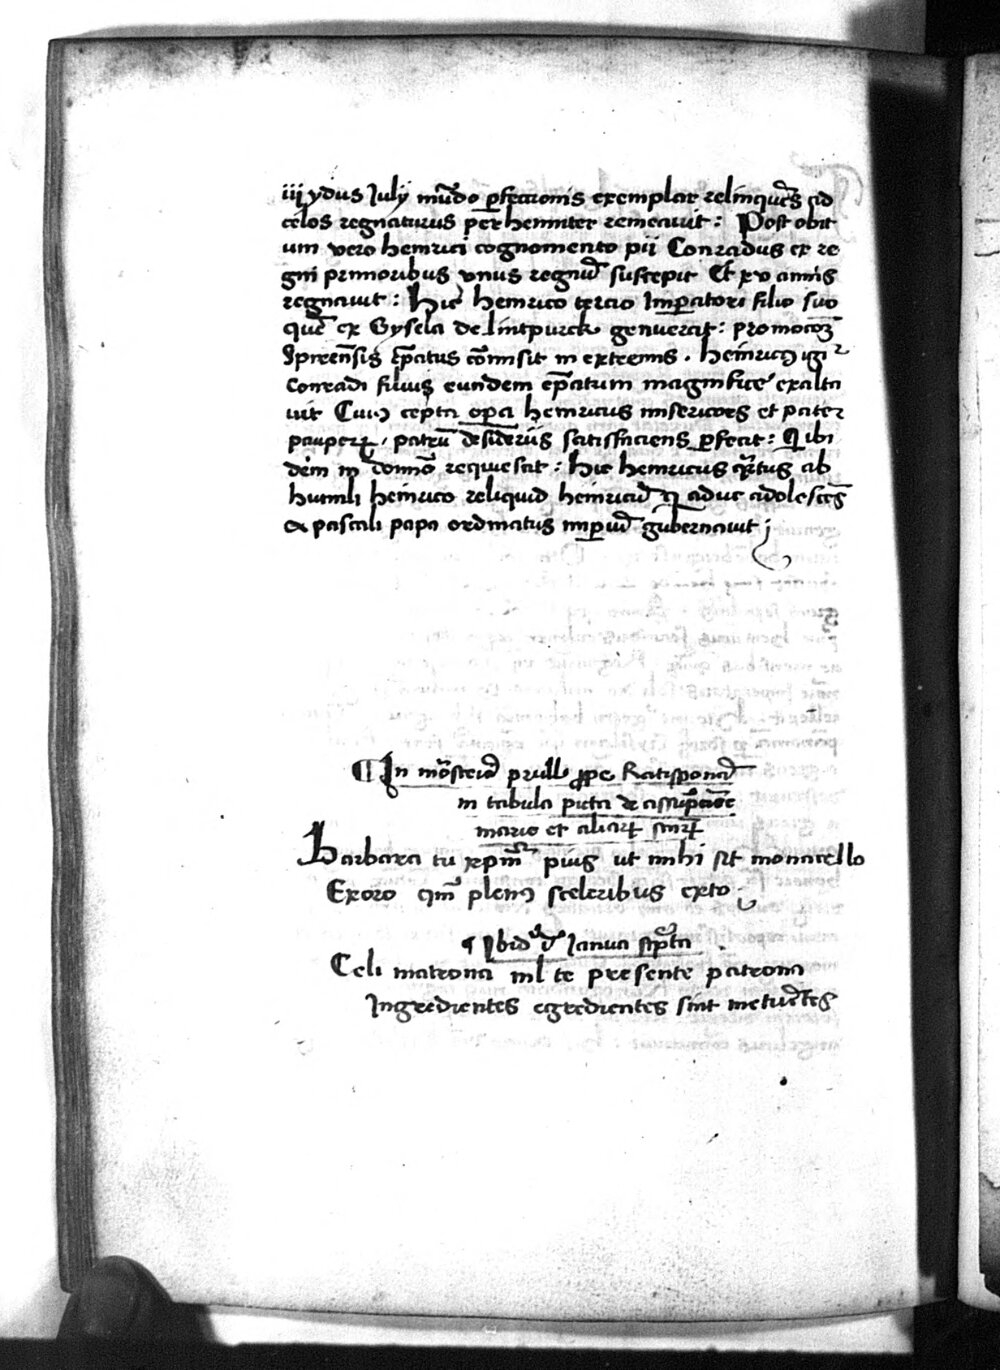 iij ydus July mūdo ꝑfectionis exemplar relinquēs ad
celos regnaturus perhenniter remeavit : Post obit
um vero heinrici cognomento pii Conradus ex re
gni primoribus vnus regnū suscepit Et xv annis
regnavit : Hic heinrico tercio Imꝑatori filio suo
quē ex Gysela de lintpurck genuerat : promocōꝫ
Spirēsis ep̄atus cōmisit in extremis . heinricꝰ igr̄
Conradi filius eundem ep̄atum magnifice exalta
uit Cuiꝰ cepta opa heinricus misericors et pater
pauperꝝ , patrū desideriis satisfaciens ꝑfecit : Qui ibi
dem in domō requiescit : hic heinricus qͣrtus ab
humili heinrico reliquid heinricū qͥ aduc adolescēs
a pascali papa ordinatus imꝑiū gubernauit ;
¶ In mōsterio prull ꝓpe Ratisponā
in tabula picta de assūpcōe
marie et alioꝝ sanctoꝝ
Barbara tu xp̄m piuꝭ ut mihi sit monacello
Exoro qm̄ plenꝰ sceleribus exto
¶ Ibidē Ianua sc̄pta
Celi matrona ml̄ te presente patrona
Ingredientes egredientes sint metuētes